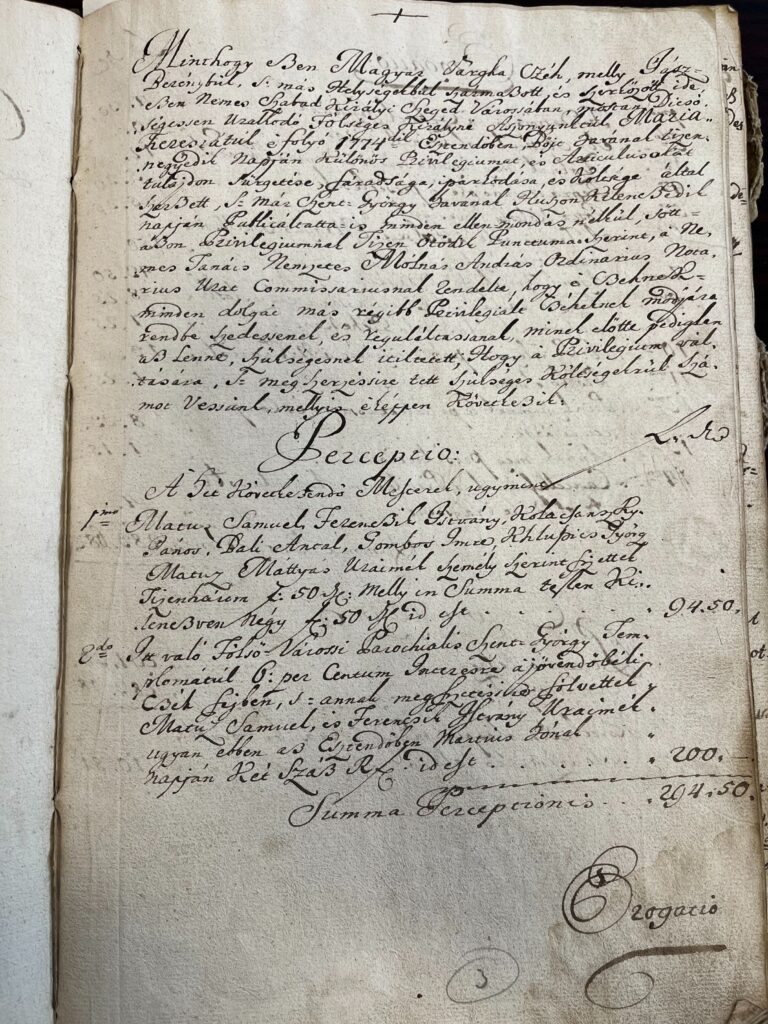 Minthogy ezen Magyar Vargha Czéh, melly Jász-
Berénybűl, s: más Helységekbűl származott, és szerkőzött ide
ezen Nemes Szabad Királyi Szeged Várossában, mostan Dicső-
ségessen Uralkodó Fölséges Királyné Aszonyunktúl Maria
Theresiátúl e folyó 1774dik Esztendőben, Böjt havának tizen-
negyedik Napján Különös Privilegiumat, és Articulusokat
tulajdon sürgetése, faradsága, parkodása, és Költsége által
szerzett, s: már Szent György havának Huszon Kilenczedik
napján Publicáltatta is minden ellenmondás nélkűl, sőtt
azon Privilegiumnak Tizen Ötödik Punctuma szerint, à Ne-
mes Tanács Nemzetes Mólnár András Ordinarius Nota-
rius Urat Commissariusnak rendelte, hogy è Czehnek
minden dolgai más régibb Privilegialt Czéheknek módjára
rendbe szedessenek, és reguláltassanak, minek előtte pediglen
az lenne, szükségesnek itiltetett, Hogy à Privilegium vál-
tására, s: megszerzéssire tett szükséges Költségekrűl Szá-
mot Vessünk, mellyis eképpen Következik:
Perceptio:
A Hét Következendő Mesterek, ugymint
1mo Matuz Samuel, Ferenczik Istvány, Kolacsanszky
János, Pali Antal, Gombos Imre, Khluppics György
Matuz Máttyás Uraimék személy szerint fizettek
Tizenhárom f: 50 X: Melly in Summa teszen Ki-
lenczven Négy f: 50 X id est . . . . . . . 94.50.
2do Itt való Fölső-Várossi Parochialis Szent-György Tem-
plomátúl 6: per Centum Interesre à jövendőbéli
Czéh fejben, s: annak megfizetéssire fölvettek
Matuz Samuel, és Ferenczik Istvány Uraimék
ugyan ebben az Esztendőben Martius hónak
napján Két Száz Rf. id est . . . . . . 200.
Summa Perceptionis . . . 294.50.
Erogatio
3